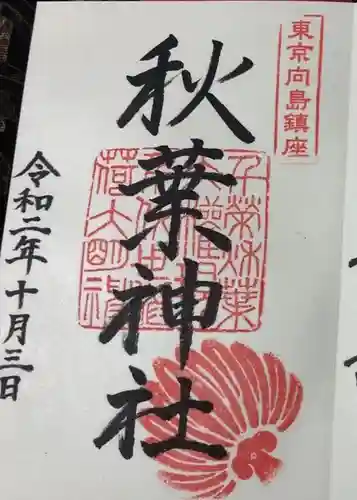 東京向島鎮座
秋葉神社
令和二年十月三日